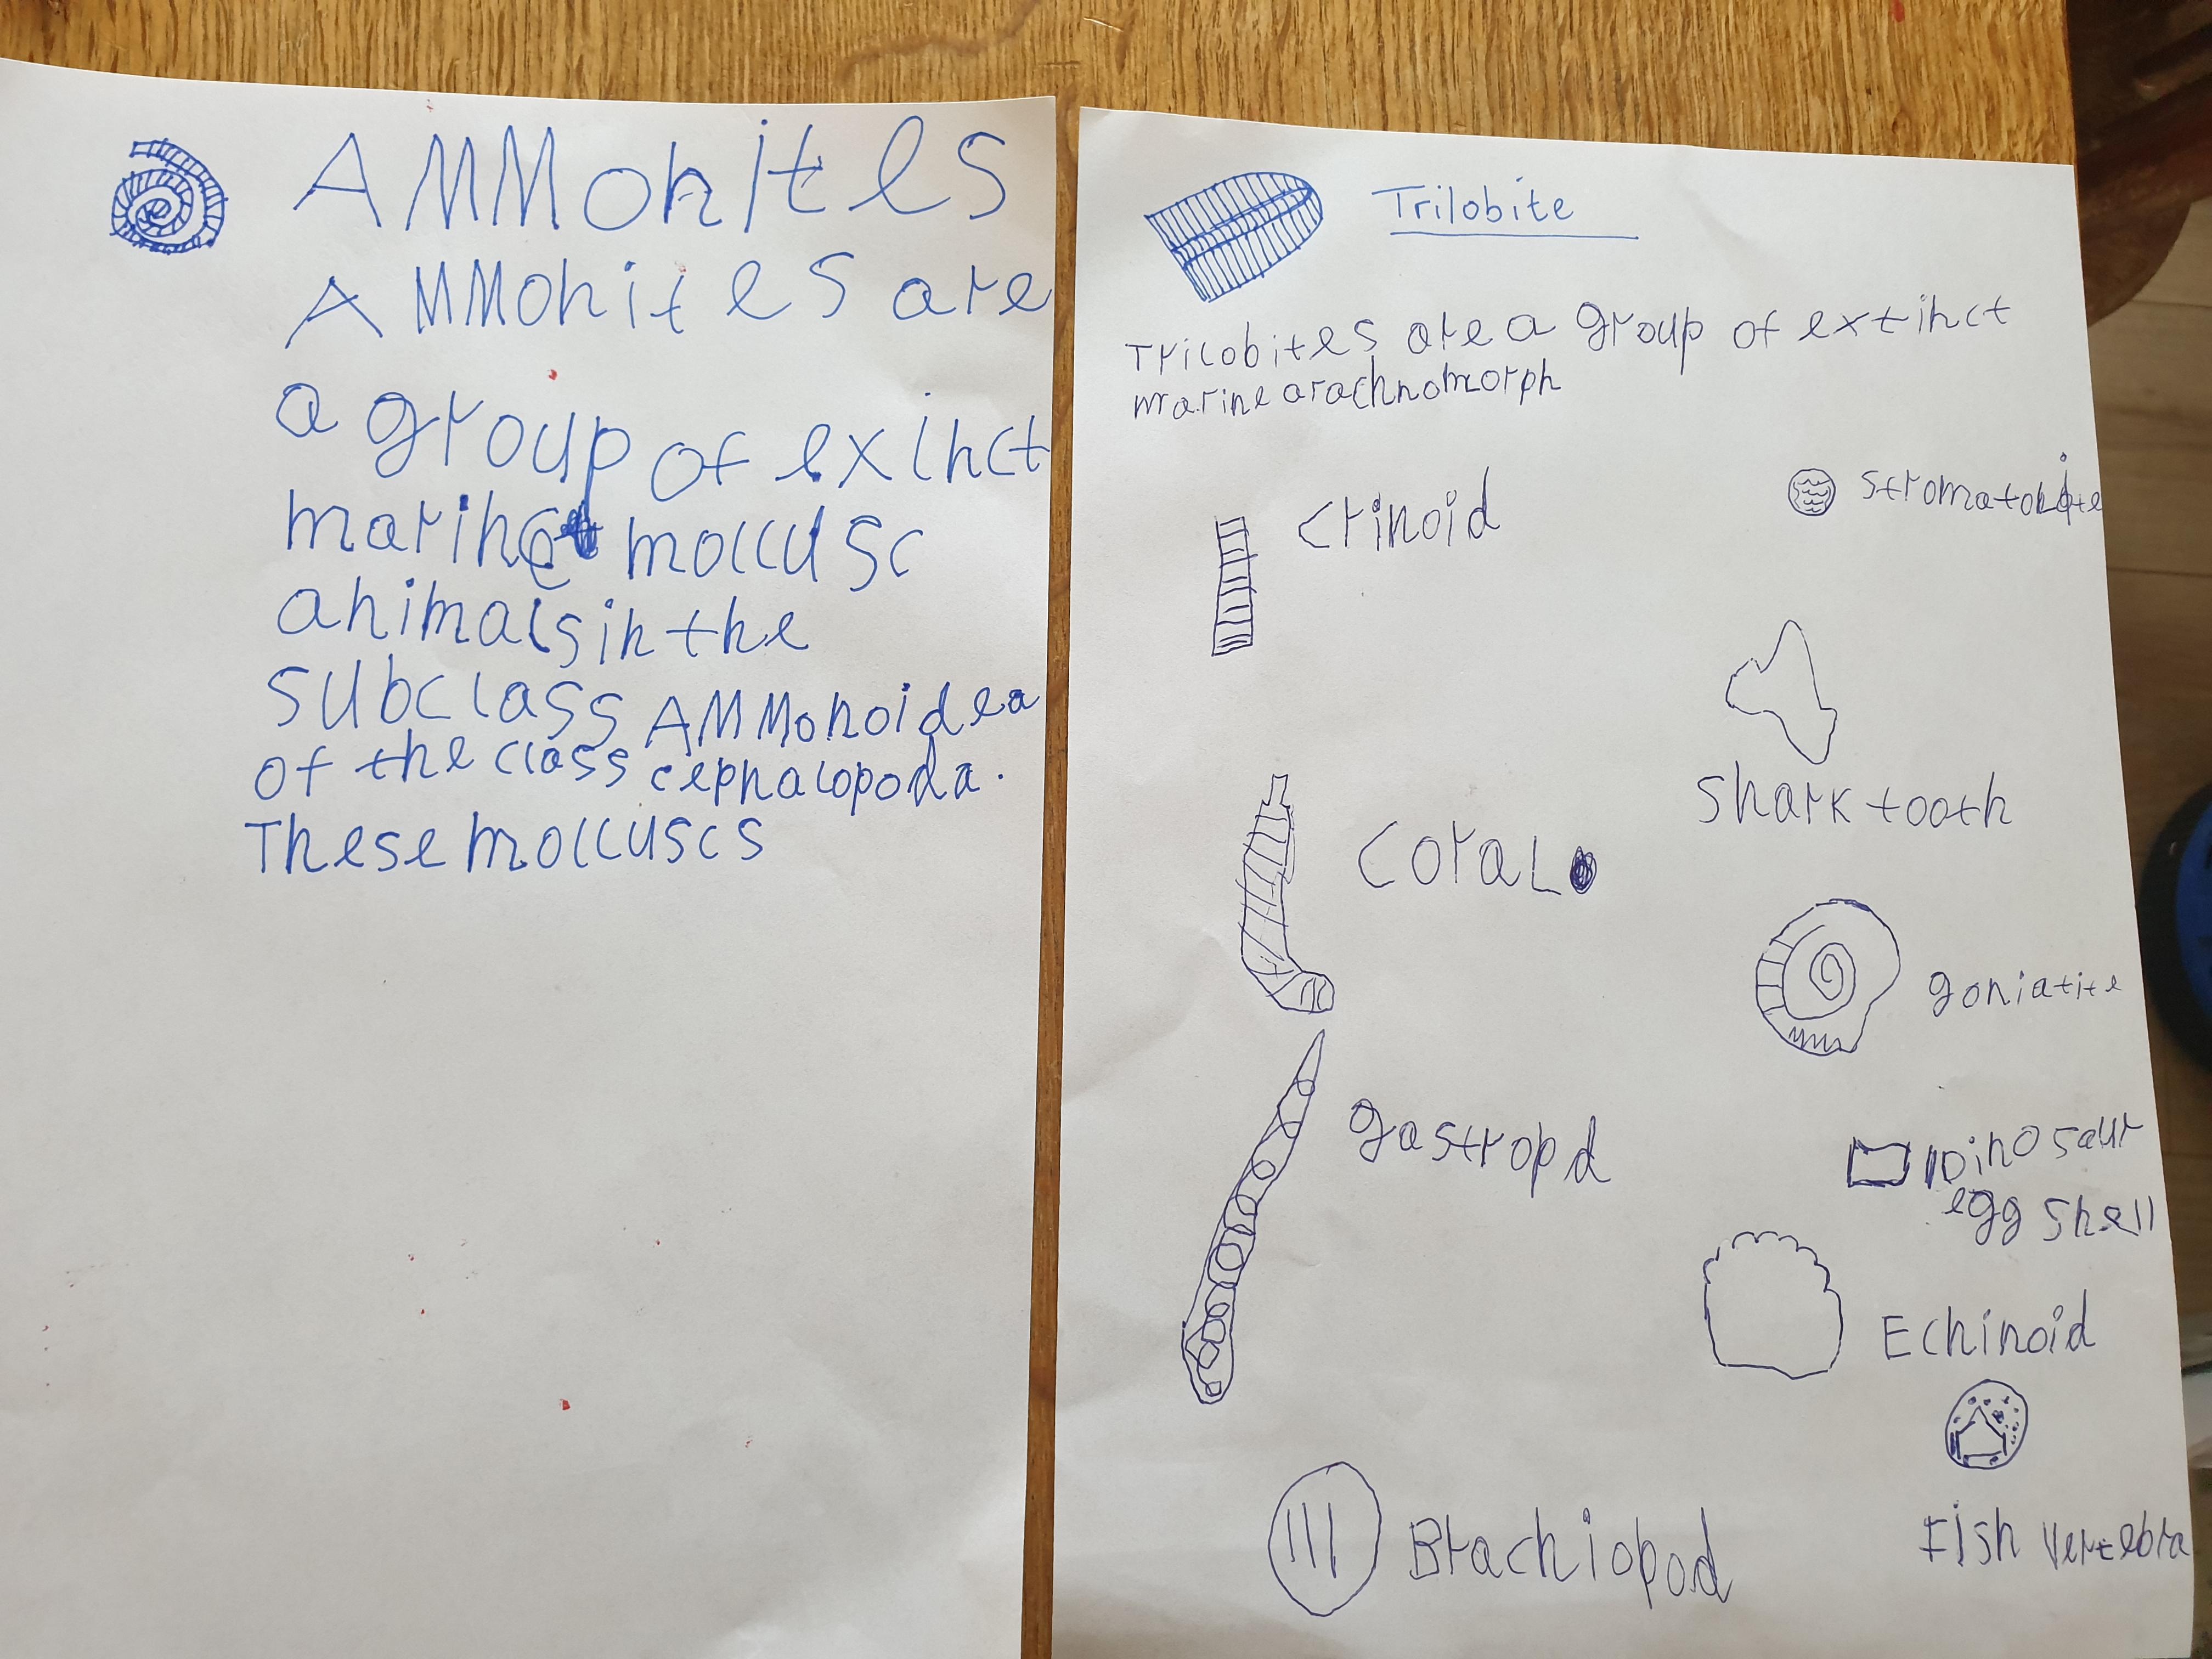 AMMonites
AMMonites are
a group of exinct
marine mollusc
animals in the
subclass AMMonoidea
of the class cephalopoda.
These molluscs
Trilobite
Trilobites are a group of extinct
marine arachnomorph
crinoid
stromatolite
shark tooth
coral
goniatite
gastropd
Dinosaur
egg shell
Echinoid
Brachiopod
Fish vertebra